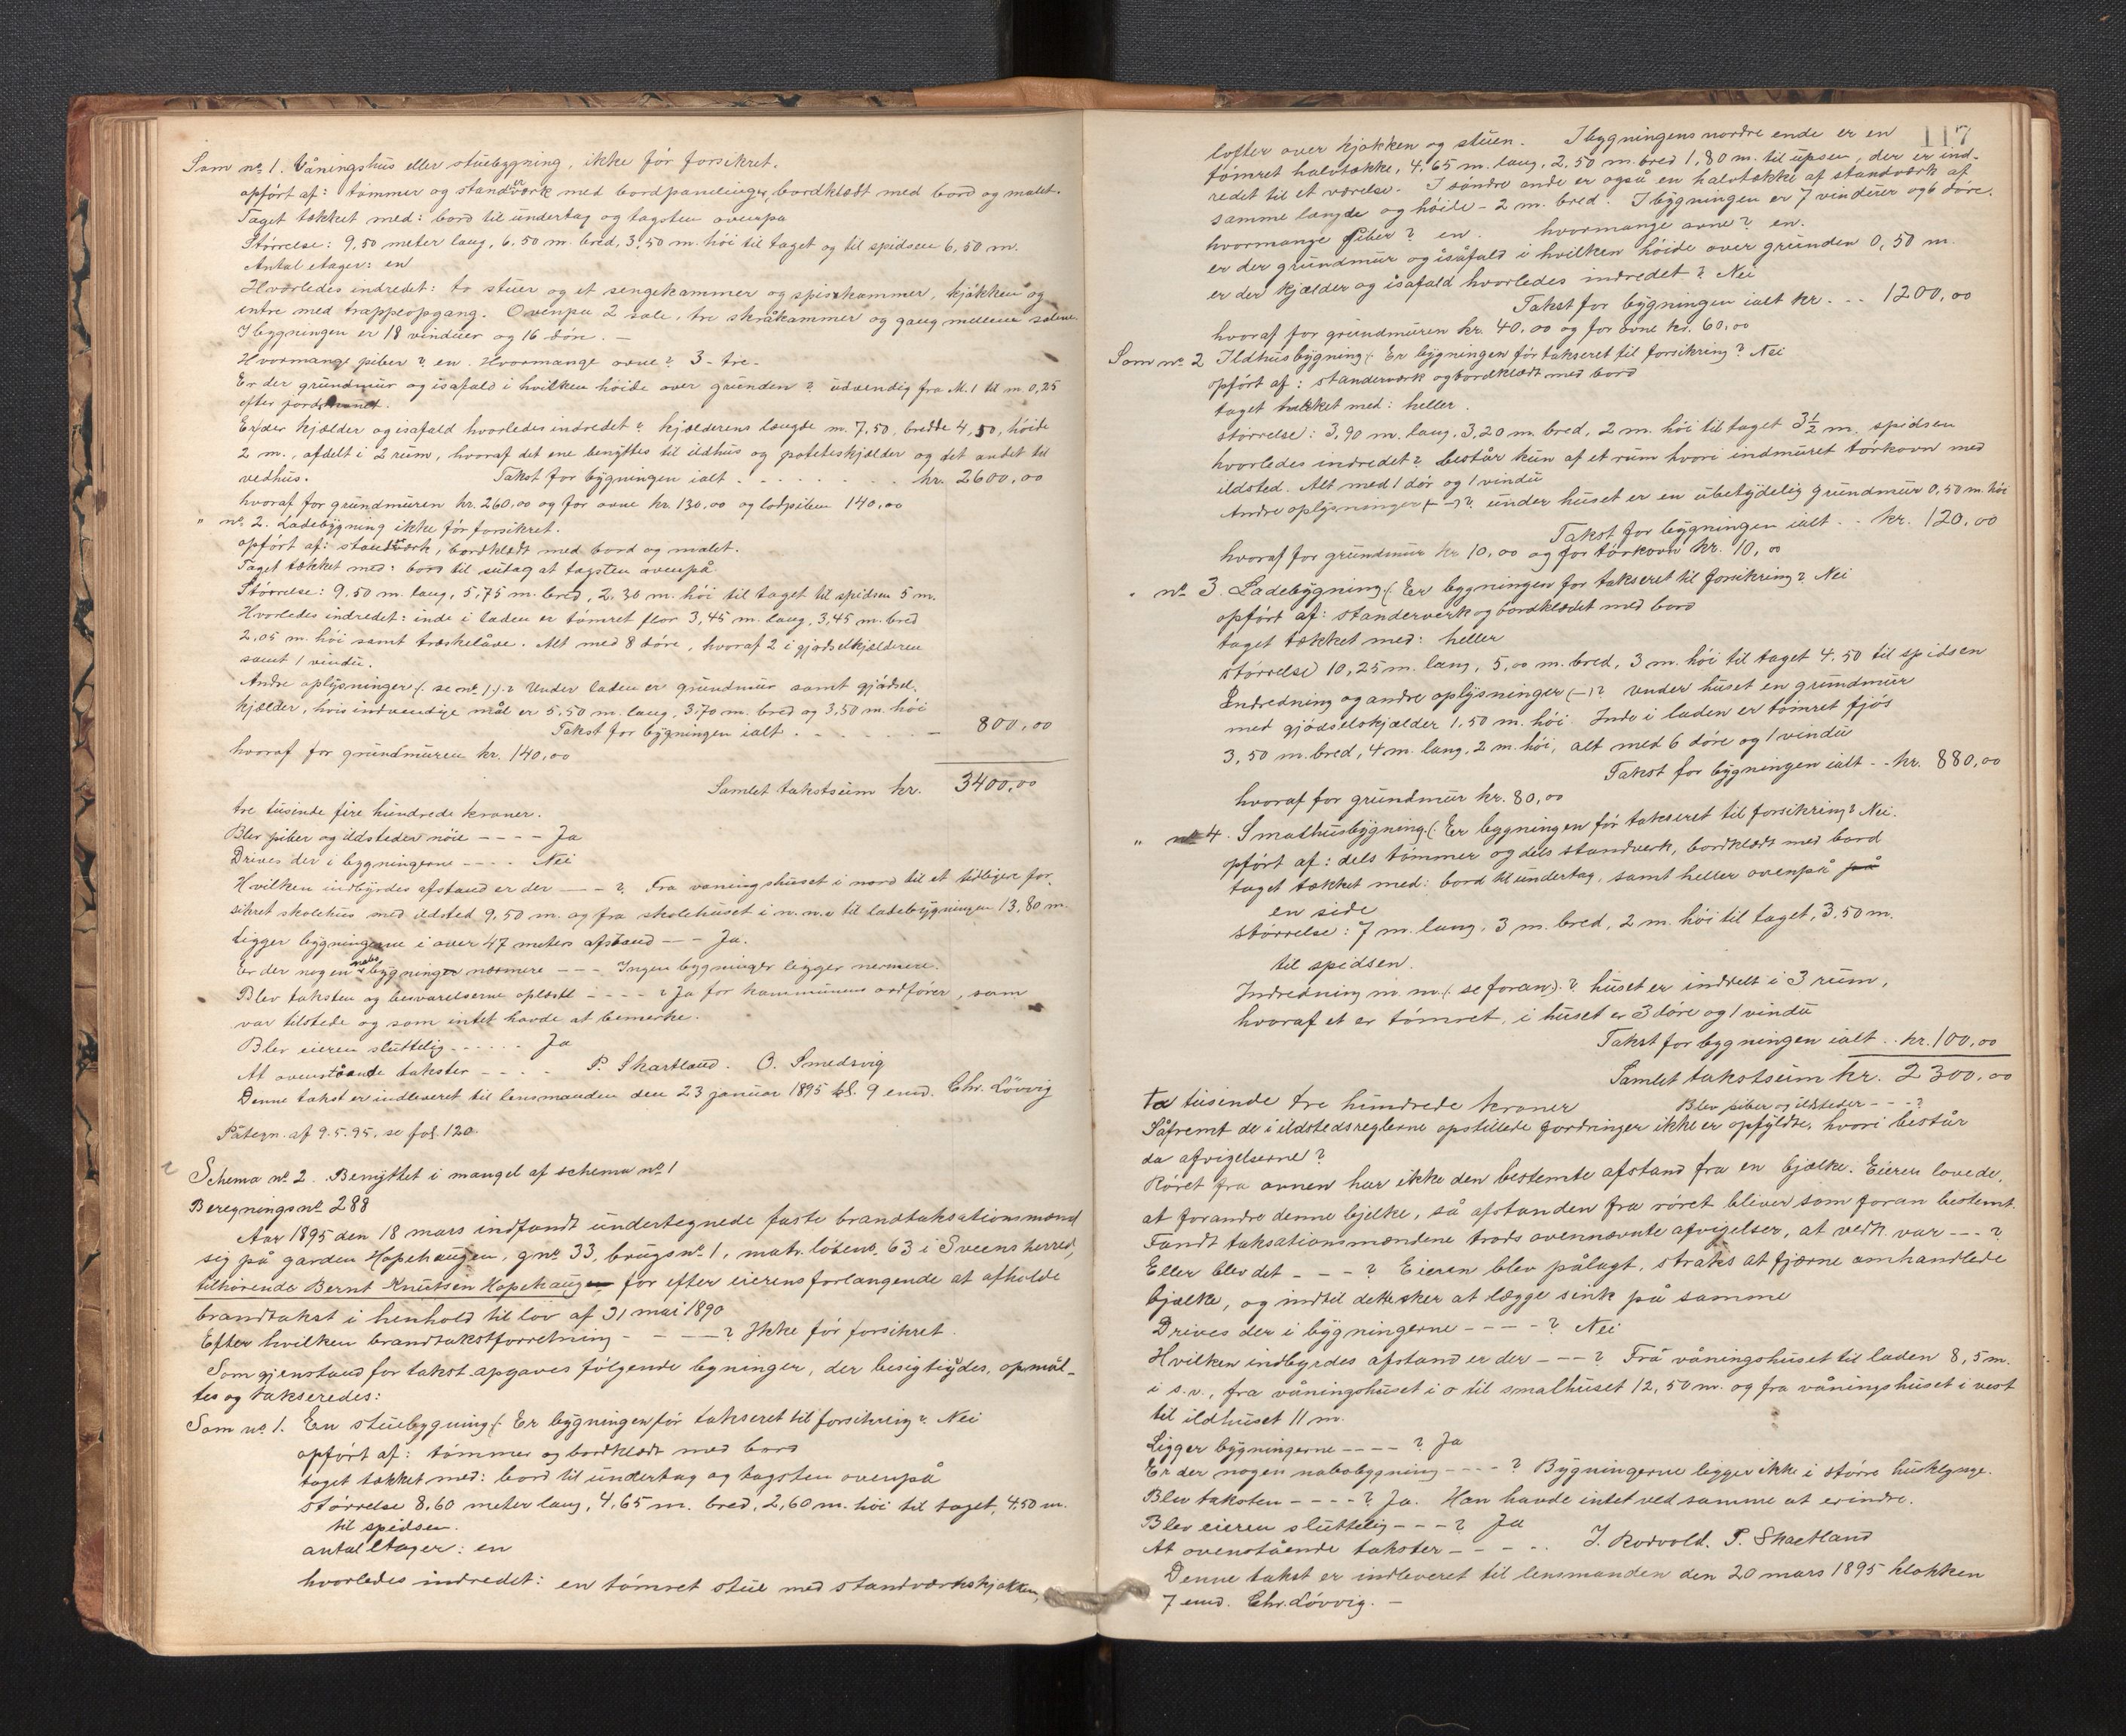 Som no 1. Våningshus eller stuebygning, ikke før forsikret.
opført af: tømmer og standværk med bordpanelinger, bordklædt med bord og malet.
Taget tækket med: bord til undertag og tagsten ovenpa
Størrelse: 9,50 meter lang, 6,50 m. bred, 3,50 m. høi til taget og til spidsen 6,50 m.
Antal etager: en
Hvorledes indredet: to stuer og et sengekammer og spisekammer, kjøkken og
entre med trappeopgang. Ovenpa 2 sale, tre skråkammer og gang mellem salene.
I bygningen er 18 vinduer og 16 døre. —
Hvormange piber? en Hvormange ovne? 3 - tre.
Er der grundmur og isafald i hvilken høide over grunden? udvendig fra M. 1 til m. 0,25
efter jordsmonet.
Er der kjælder og isafald hvorledes indredet? kjælderens længde m. 7,50, bredde 4,50, høide
2 m., afdelt i 2 rum, hvoraf det ene benyttes til ildhus og poteteskjælder og det andet til
vedhus. Takst for bygningen ialt . . . . . . . . kr. 2600,00
hvoraf for grundmuren kr. 260,00 og for ovne kr. 130,00 og lodpiben 140,00
" no 2. Ladebygning ikke før forsikret.
opført af: standværk, bordklædt med bord og malet.
Taget tækket med: bord til sutag at tagsten ovenpå
Størrelse: 9,50 m. lang, 5,75 m. bred, 2,30 m. høi til taget til spidsen 5 m.
Hvorledes indredet: inde i laden er tømret flor 3,45 m. lang, 3,45 m. bred
2,05 m. høi samt træskelåve. Alt med 8 døre, hvoraf 2 i gjødselkjælderen
samt 1 vindu.
Andre oplysninger (: se no 1 :)? Under laden er grundmur samt gjødsel-
kjælder, hvis indvendige mål er 5,50 m. lang, 3,70 m. bred og 3,50 m. høi
Takst for bygningen ialt . . . . . . — 800,00
hvoraf for grundmuren kr. 140,00
Samlet takstsum kr. 3400,00
tre tusinde fire hundrede kroner.
Blev piber og ildsteder nøie - - - - Ja
Drives der i bygningerne - - - - Nei
Hvilken indbyrdes afstand er der — - ? Fra vaningshuset i nord til et tidligere for-
sikret skolehus med ildsted 9,50 m. og fra skolehuset i n.n.o til ladebygningen 13,80 m.
Ligger bygningerne i over 47 meters afstand - - Ja.
Er der nogen nabobygninger nærmere - - - Ingen bygninger ligger nermere.
Blev taksten og besvarelserne oplæst - - - - ? Ja for kommunens ordfører, som
var tilstede og som intet havde at bemerke.
Blev eieren sluttelig - - - - - Ja
At ovenstående takster - - - - P. Skartland. O. Smedsvig
Denne takst er indleveret til lensmanden den 23 januar 1895 kl. 9 emd. Chr. Løvvig
Påtegn. af 9.5.95, se fol. 120.
Schema no 2. Benyttet i mangel af schema no 1
Beregnings no 288
Aar 1895 den 18 mars indfandt undertegnede faste brandtaksationsmænd
sig på garden Hopehaugen, gno 33, brugsno 1, matr. løbeno. 63 i Sveens herred,
tilhørende Bernt Knutsen Hopehaugen for efter eierens forlangende at afholde
brandtakst i henhold til lov af 31 mai 1890
Efter hvilken brandtakstforretning - - — — ? Ikke før forsikret.
Som gjenstand for takst opgaves følgende bygninger, der besigtigdes, opmål-
tes og takseredes:
Som no 1. En stuebygning (: Er bygningen før takseret til forsikring? Nei
opført af: tømmer og bordklædt med bord
taget tækket med: bord til undertag og tagsten ovenpå
størrelse 8,60 meter lang, 4,65 m. bred, 2,60 m. høi til taget, 4,50 m.
til spidsen.
antal etager: en
hvorledes indredet: en tømret stue med standværkskjøkken,
117
lofter over kjøkken og stuen. I bygningens nordre ende er en
tømret halvtække, 4,65 m. lang, 2,50 m. bred 1,80 m. til upsen, der er ind-
redet til et værelse. I søndre ende er også en halvtække af standværk af
samme længde og høide - 2 m. bred. I bygningen er 7 vinduer og 6 døre.
hvormange piber? en. hvormange ovne? en.
er der grundmur og isåfald i hvilken høide over grunden 0,50 m.
er der kjælder og isåfald hvorledes indredet? Nei
Takst for bygningen ialt kr. - - 1200,00
hvoraf for grundmuren kr. 40,00 og for ovne kr. 60,00
Som no 2 Ildhusbygning (: Er bygningen før takseret til forsikring? Nei
opført af: standerværk og bordklædt med bord
taget tækket med: heller.
størrelse: 3,90 m. lang, 3,20 m. bred, 2 m. høi til taget 3 1/2 m. spidsen
hvorledes indredet? består kun af et rum hvori indmuret tørkovn med
ildsted. Alt med 1 dør og 1 vindu
Andre oplysninger (—)? under huset er en ubetydelig grundmur 0,50 m. høi
Takst for bygningen ialt . . kr. 120,00
hvoraf for grundmur kr 10,00 og for tørkovn kr. 10,00
" no 3. Ladebygning (: Er bygningen før takseret til forsikring? Nei
opført af: standerverk og bordklædet med bord
taget tækket med: heller
størrelse 10,25 m. lang, 5,00 m. bred, 3 m. høi til taget 4.50 til spidsen
Indredning og andre oplysninger (—)? Under huset en grundmur
med gjødselskjælder 1,50 m. høi. Inde i laden er tømret fjøs
3,50 m. bred, 4 m. lang, 2 m. høi, alt med 6 døre og 1 vindu
Takst for bygningen ialt - - kr. 880,00
hvoraf for grundmur kr. 80,00
" no 4. Smalhusbygning. (: Er bygningen før takseret til forsikring? Nei.
opført af: dels tømmer og dels standverk, bordklædt med bord
taget tækket med: bord til undertag, samt heller ovenpå på
en side
størrelse: 7 m. lang, 3 m. bred, 2 m. høi til taget, 3,50 m.
til spidsen.
Indredning m. m. (: se foran :)? huset er inddelt i 3 rum,
hvoraf et er tømret, i huset er 3 døre og 1 vindu
Takst for bygningen ialt . . kr. 100,00
Samlet takstsum kr. 2300,00
to tusinde tre hundrede kroner Blev piber og ildsteder - - - ?
Såfremt de i ildstedsreglerne opstillede fordringer ikke er opfyldte, hvori består
da afvigelserne?
Røret fra ovnen har ikke den bestemte afstand fra en bjælke. Eieren lovede,
at forandre denne bjelke, så afstanden fra røret bliver som foran bestemt.
Fandt taksationsmændene trods ovennævnte afvigelser, at vedk. var - - - ?
Eller blev det - - - ? Eieren blev pålagt, straks at fjærne omhandlede
bjælke, og indtil dette sker at lægge sink på samme
Drives der i bygningerne - - - - ? Nei
Hvilken indbyrdes afstand er der - - - ? Fra våningshuset til laden 8,5 m.
i s.v., fra våningshuset i o til smalhuset 12,50 m. og fra våningshuset i vest
til ildhuset 11 m.
Ligger bygningerne - - - - ? Ja
Er der nogen nabobygning - - - - ? Bygningerne ligger ikke i større husklynge.
Blev taksten - - - - ? Ja. Han havde intet ved samme at erindre.
Blev eieren sluttelig - - - ? Ja
At ovenstående takster - - - - . J. Rodvold. P. Skartland
Denne takst er indleveret til lensmanden den 20 mars 1895 klokken
7 emd. Chr. Løvvig. —